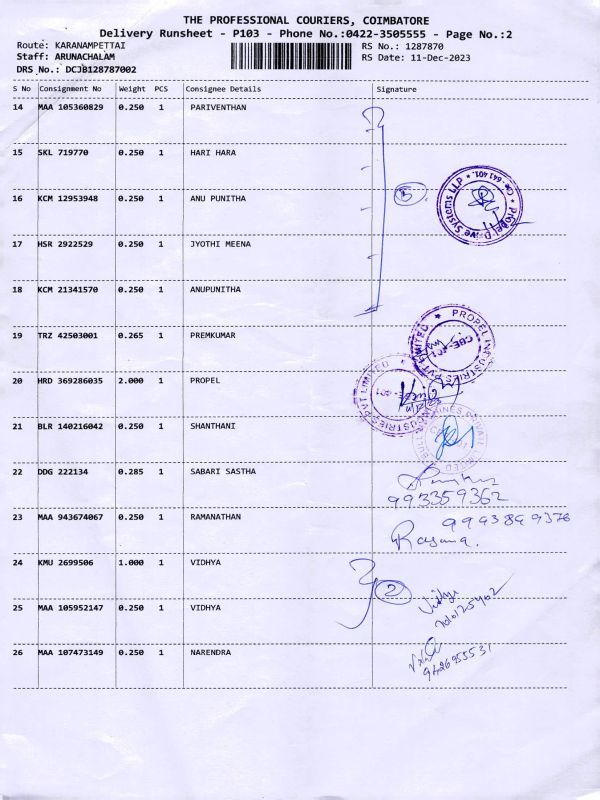 THE PROFESSIONAL COURIERS, COIMBATORE
Delivery Runsheet - P103 - Phone No.:0422-3505555 - Page No.:2
Route: KARANAMPETTAI
RS No.: 1287870
Staff: ARUNACHALAM
RS Date: 11-Dec-2023
DRS No.: DCJB128787002
S No Consignment No Weight PCS Consignee Details Signature
14 MAA 105360829 0.250 1 PARIVENTHAN
15 SKL 719770 0.250 1 HARI HARA
16 KCM 12953948 0.250 1 ANU PUNITHA
5
Propel Drive Systems LLP * Cbe. 641 401. *
17 HSR 2922529 0.250 1 JYOTHI MEENA
18 KCM 21341570 0.250 1 ANUPUNITHA
19 TRZ 42503001 0.265 1 PREMKUMAR
PROPEL INDUSTRIES PVT LIMITED *
CBE-401
20 HRD 369286035 2.000 1 PROPEL
INDUSTRIES PVT LIMITED
21 BLR 140216042 0.250 1 SHANTHANI
22 DDG 222134 0.285 1 SABARI SASTHA
993359362
23 MAA 943674067 0.250 1 RAMANATHAN
9993899376
24 KMU 2699506 1.000 1 VIDHYA
2
25 MAA 105952147 0.250 1 VIDHYA
Vidhya
26 MAA 107473149 0.250 1 NARENDRA
9426955531